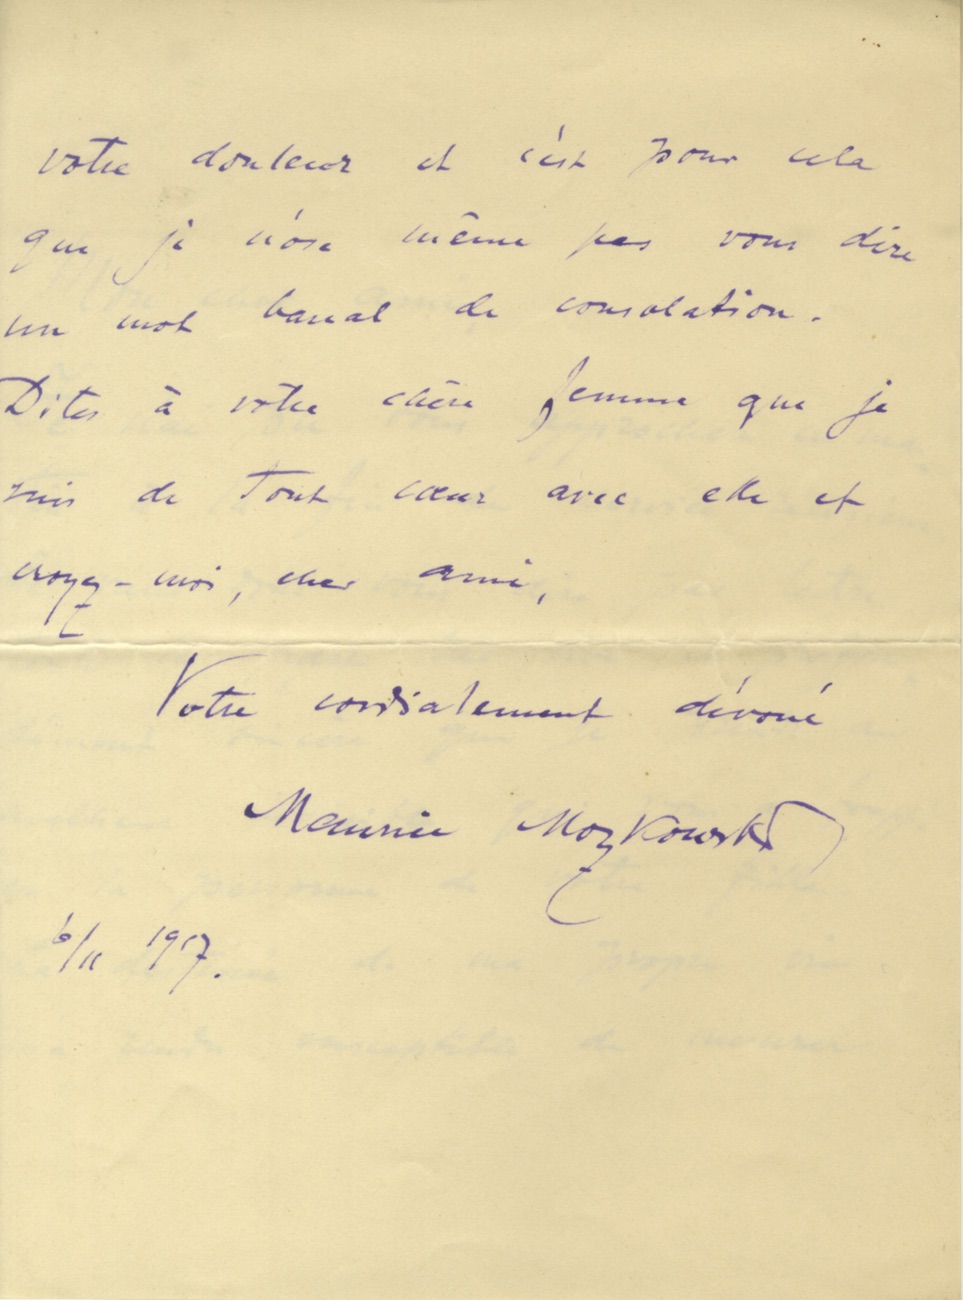 votre douleur et c'est pour cela
que je n'ose même pas vous dire
un mot banal de consolation.
Dites à votre chère femme que je
suis de tout cœur avec elle et
croyez-moi, cher ami,
Votre cordialement dévoué
Maurice Moszkowski
6/II 1917.